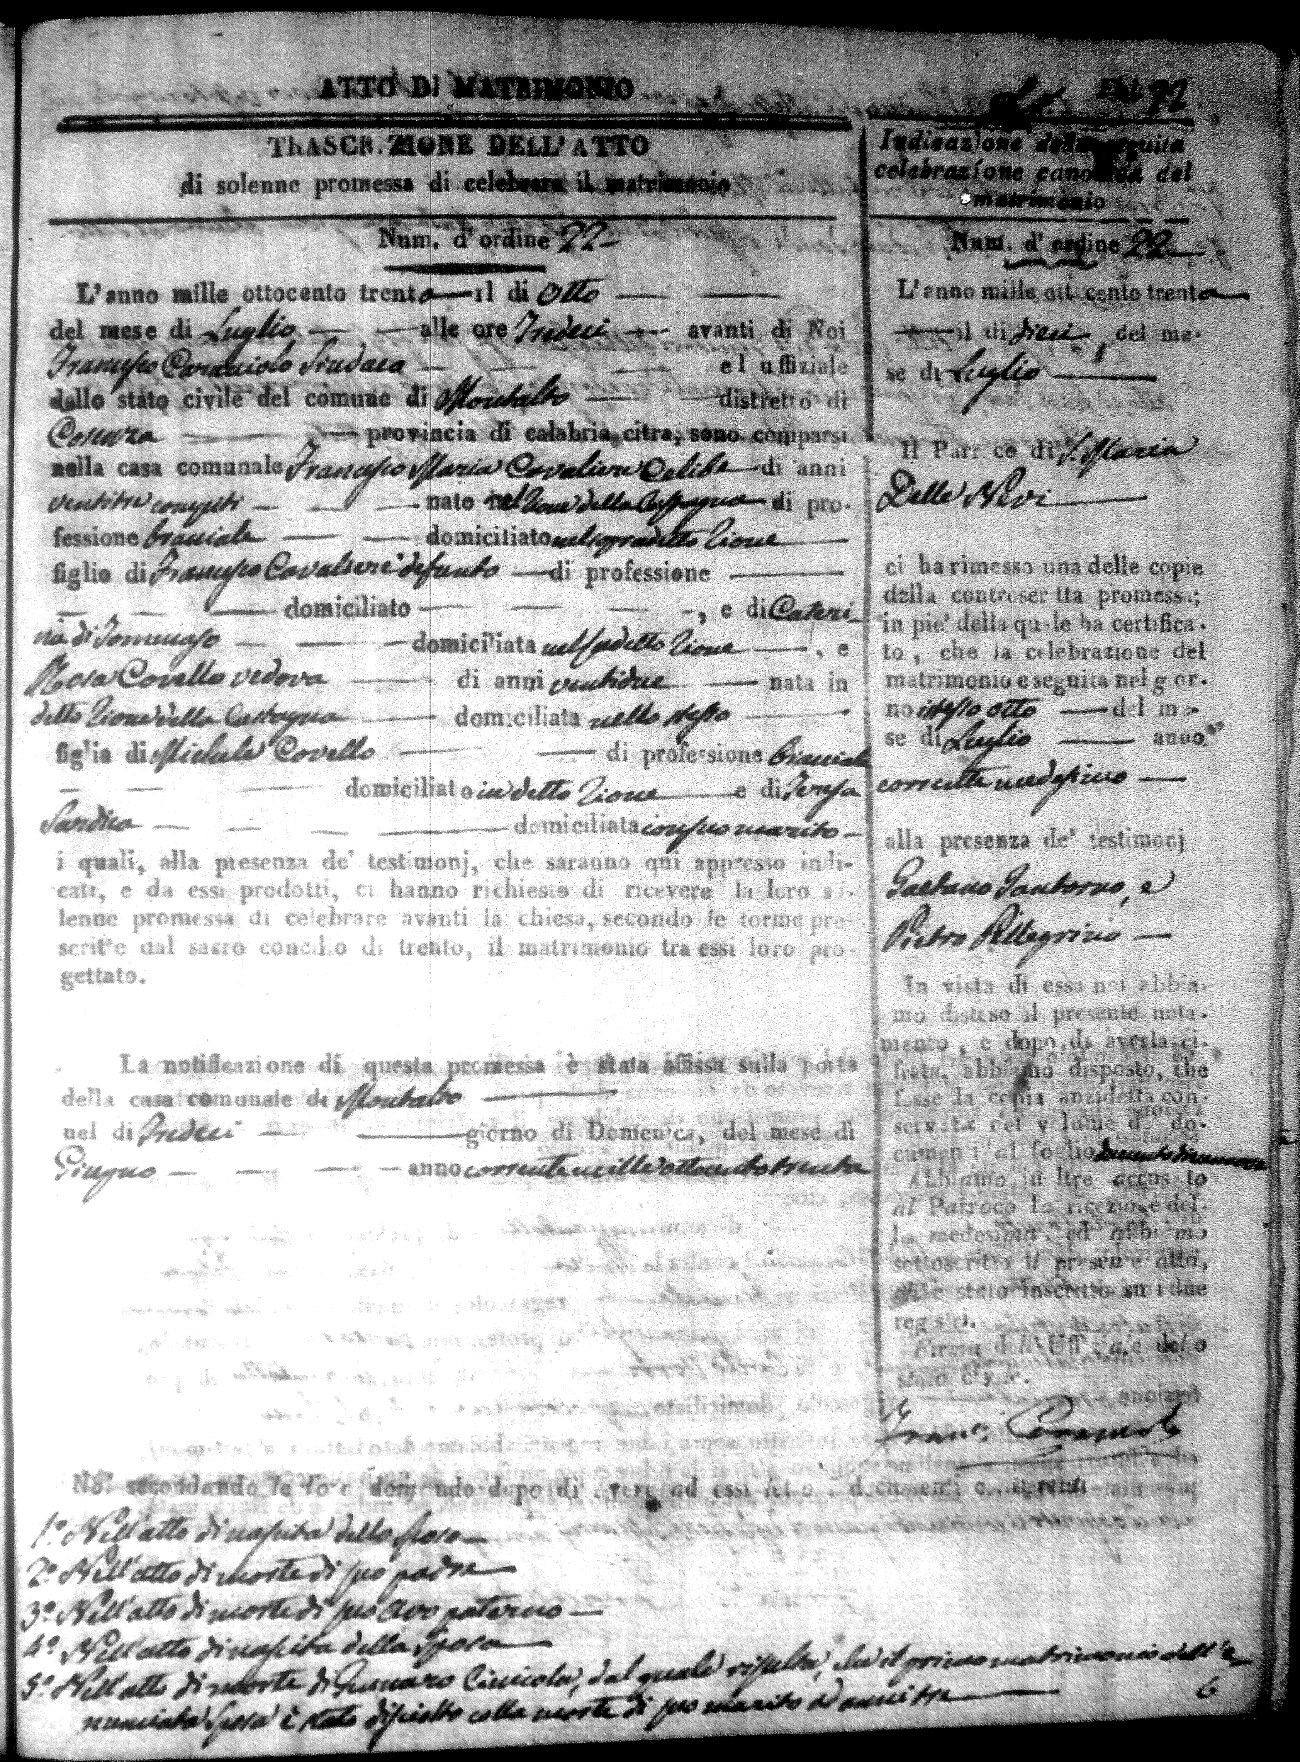 ATTO DI MATRIMONIO
Fol. 92
TRASCRIZIONE DELL'ATTO
di solenne promessa di celebrare il matrimonio
Num. d'ordine 22
L'anno mille ottocento trenta il di otto
del mese di Luglio alle ore Tredeci avanti di Noi
Francesco Caracciolo Sindaco ed uffiziale
dello stato civile del comune di Montalto distretto di
Cosenza provincia di calabria citra, sono comparsi
nella casa comunale Francesco Maria Cavalieri Celibe di anni
ventitre compiti nato nel Rione della Castagna di pro-
fessione bracciale domiciliato nel sopradetto Rione
figlio di Francesco Cavalieri defunto di professione
domiciliato , e di Cateri
na di Tommaso domiciliata nel sudetto Rione , e
Rosa Covello vedova di anni ventidue nata in
detto Rione della Castagna domiciliata nello stesso
figlia di Michele Covello di professione bracciale
domiciliato in detto Rione e di Teresa
domiciliata con suo marito
i quali, alla presenza de' testimonj, che saranno qui appresso indi-
cati, e da essi prodotti, ci hanno richiesto di ricevere la loro so-
lenne promessa di celebrare avanti la chiesa, secondo le forme pre-
scritte dal sacro concilio di trento, il matrimonio tra essi loro pro-
gettato.
La notificazione di questa promessa è stata affissa sulla porta
della casa comunale di Montalto
nel di Tredeci giorno di Domenica, del mese di
Giugno anno corrente mille ottocento trenta
Noi secondando le loro domande dopo di avere ad essi letto i documenti consistenti
1.° Nell'atto di nascita dello sposo
2.° Nell'atto di morte di suo padre
3.° Nell'atto di morte di suo avo paterno
4.° Nell'atto di nascita della sposa
5.° Nell'atto di morte di Gennaro dal quale risulta, che il primo matrimonio dell'e
nunciata sposa è stato disciolto colla morte di suo marito
6
Indicazione della seguita
celebrazione canonica del
matrimonio
Num. d'ordine 22
L'anno mille ottocento trenta
il di dieci del me-
se di Luglio
Il Parroco di S. Maria
Delle Nevi
ci ha rimesso una delle copie
della controscritta promessa;
in pie' della quale ha certifica-
to, che la celebrazione del
matrimonio e seguita nel gior-
no istesso otto del me-
se di Luglio anno
corrente medesimo
alla presenza de' testimonj
Gaetano e
Pietro Pellegrino
In vista di essa noi abbia-
mo disteso il presente nota-
mento, e dopo di averla ci-
frata, abbiamo disposto, che
fosse la copia anzidetta con-
servata nel volume de' do-
cumenti al foglio
Abbiamo in oltre accusato
al Parroco la ricezione del-
la medesima, ed abbiamo
sottoscritto il presente atto,
che è stato inscritto su i due
registri.
Firma dell'Uffiziale dello
stato civile.
Franc. Caracciolo